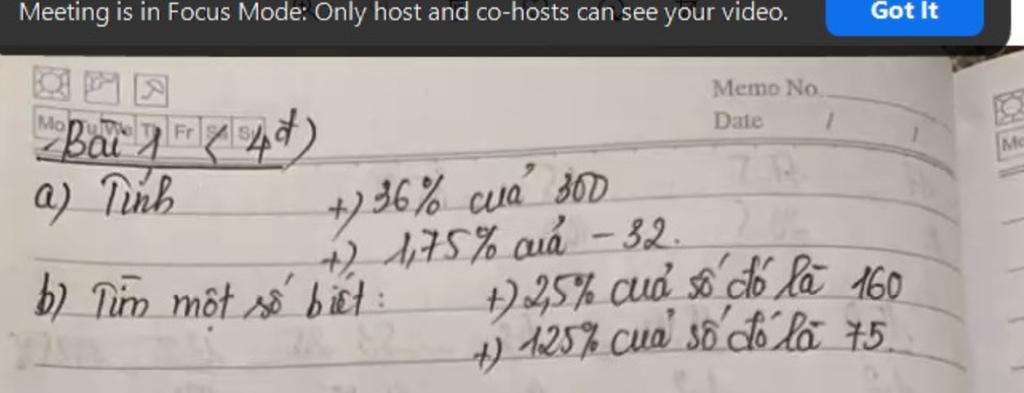 Meeting is in Focus Mode: Only host and co-hosts can see your video. Got It
Memo No.
Mo Tu We Th Fr Sa Su
Date / /
Bài 1 (4đ)
a) Tính +) 36% của 300
+) 1,75% của -32.
b) Tìm một số biết: +) 2,5% của số đó là 160
+) 125% của số đó là 75.
Mo